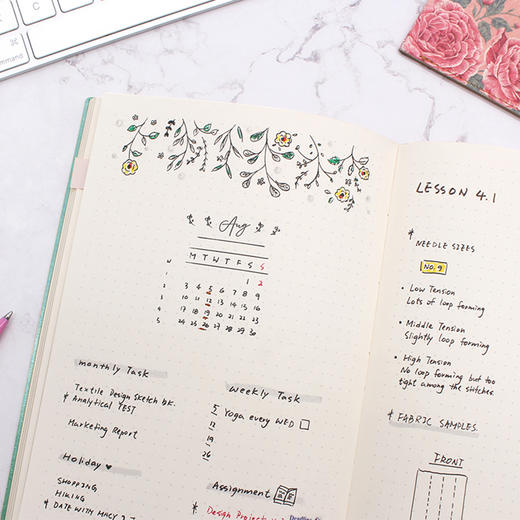 Aug
W M T W T F S S
1 1 2
2 3 4 5 6 7 8 9
3 10 11 12 13 14 15 16
4 17 18 19 20 21 22 23
5 24 25 26 27 28 29 30
monthly Task
Textile Design Sketch bk.
* Analytical TEST
Marketing Report
Holiday ♥
SHOPPING
HIKING
* DATE WITH
weekly Task
5 Yoga every WED
12
19
26
Assignment
* Design Project
LESSON 4.1
* NEEDLE SIZES
NO. 9
• Low Tension
Lots of loop forming
• Middle Tension
Slightly loop forming
• High Tension
No loop forming but too
tight among the stitches
* FABRIC SAMPLES.
FRONT